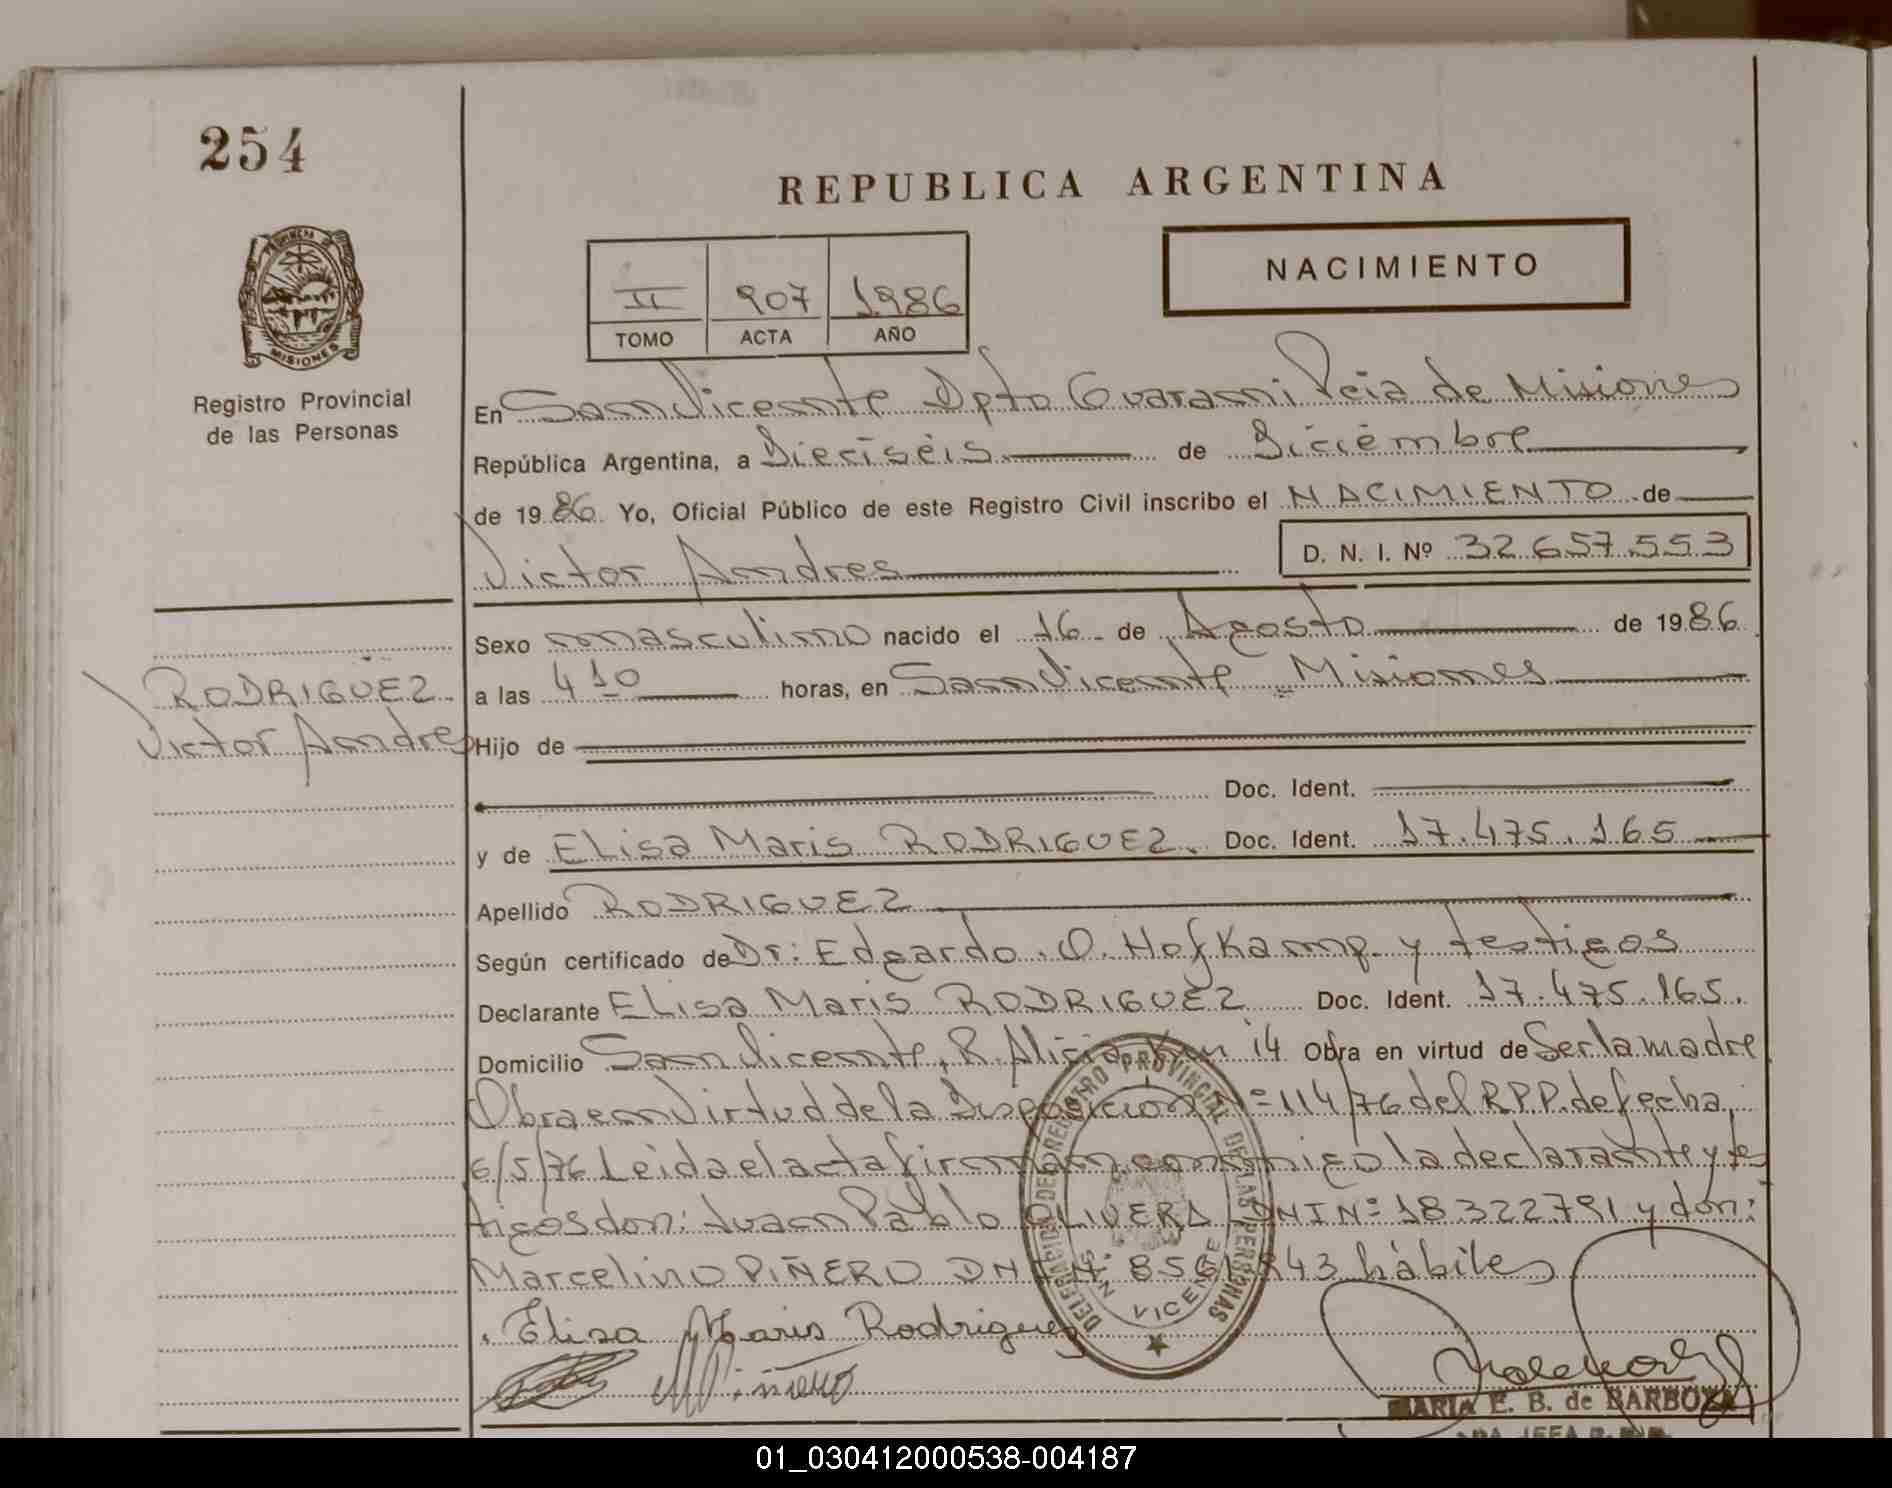 254
REPUBLICA ARGENTINA
NACIMIENTO
II 907 1986
TOMO ACTA AÑO
PROVINCIA DE
MISIONES
Registro Provincial
de las Personas
En San Vicente Dpto Guarani Pcia de Misiones
República Argentina, a Dieciséis de Diciembre
de 1986 Yo, Oficial Público de este Registro Civil inscribo el NACIMIENTO de
Victor Andres D. N. I. Nº 32.657.553
Sexo masculino nacido el 16 de Agosto de 1986
RODRIGUEZ
Victor Andres
a las 4 10 horas, en San Vicente Misiones
Hijo de
Doc. Ident.
y de ELisa Maris RODRIGUEZ. Doc. Ident. 17.475.165
Apellido RODRIGUEZ
Según certificado de Dr: Edgardo. O. Hofkamp. y testigos
Declarante ELisa Maris RODRIGUEZ Doc. Ident. 17.475.165.
Domicilio San Vicente, R. Alicia Km 14 Obra en virtud de Ser la madre
Obra en Virtud de la Disposicion Nº 114/76 del R.P.P. de fecha
6/5/76 Leida el acta firman conmigo la declarante y tes
tigos don: Juan Pablo OLIVERA DNI Nº 18322791 y don:
Marcelino PIÑERO DNI Nº 8561843 hábiles
Elisa Maris Rodriguez
DELEGACION DEL REGISTRO PROVINCIAL DE LAS PERSONAS
SAN VICENTE
M Piñero
MARIA E. B. de BARBOZA
JEFA R.P.P.
01_030412000538-004187